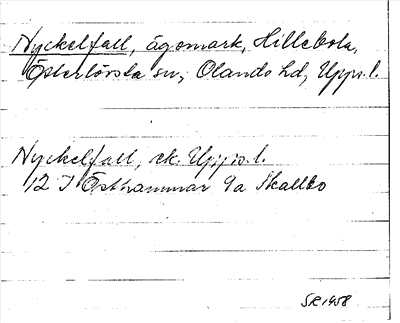 Nyckelfall, ägomark, Hillebola,
Österlövsta sn, Olands hd, Upps. l.
Nyckelfall, ek. Upps. l.
12 I Östhammar 9a Skallbo
SR 1958